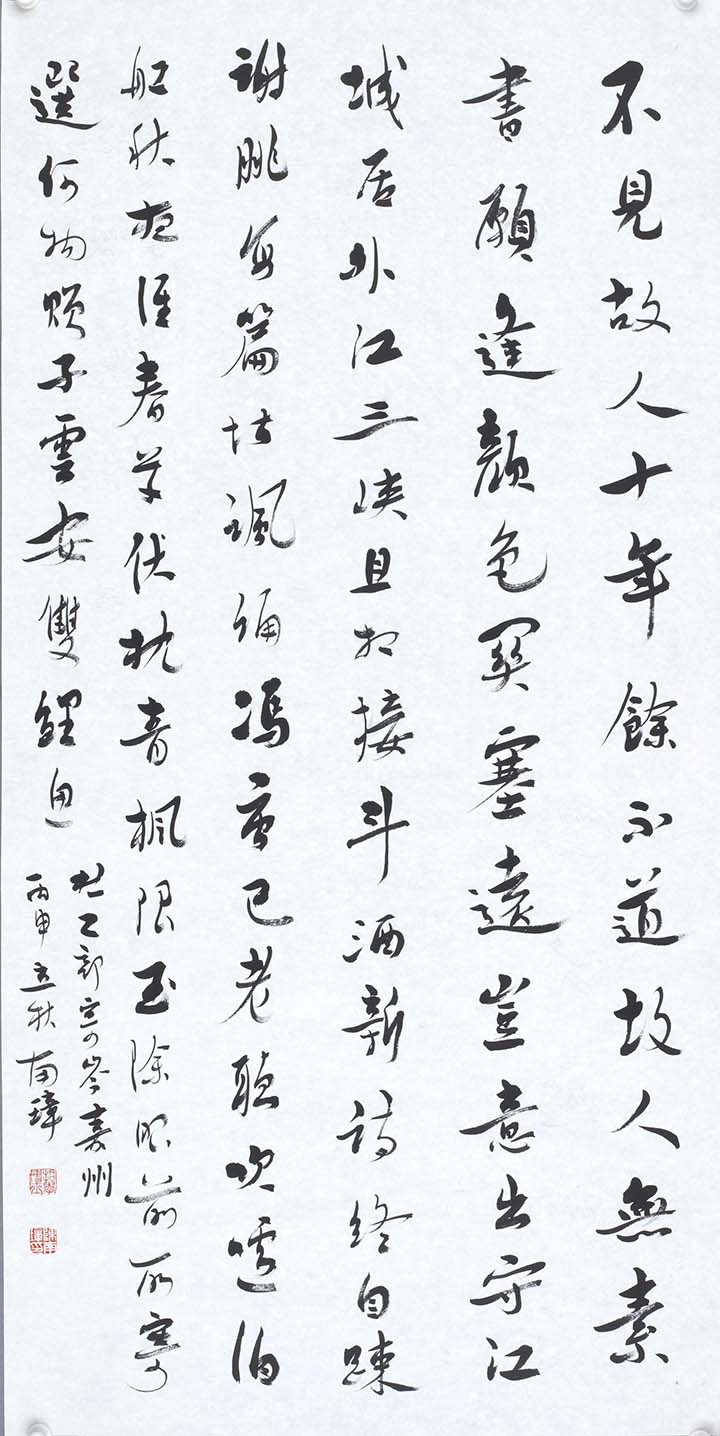 不見故人十年餘不道故人無素
書願逢顏色關塞遠豈意出守江
城居外江三峽且相接斗酒新詩終自踈
謝朓每篇堪諷誦馮唐已老聽吹噓泊
舩秋夜經春草伏枕青楓限玉除眼前所寄
選何物贈子雲安雙鯉魚
杜工部寄岑嘉州
丙申立秋南瑋